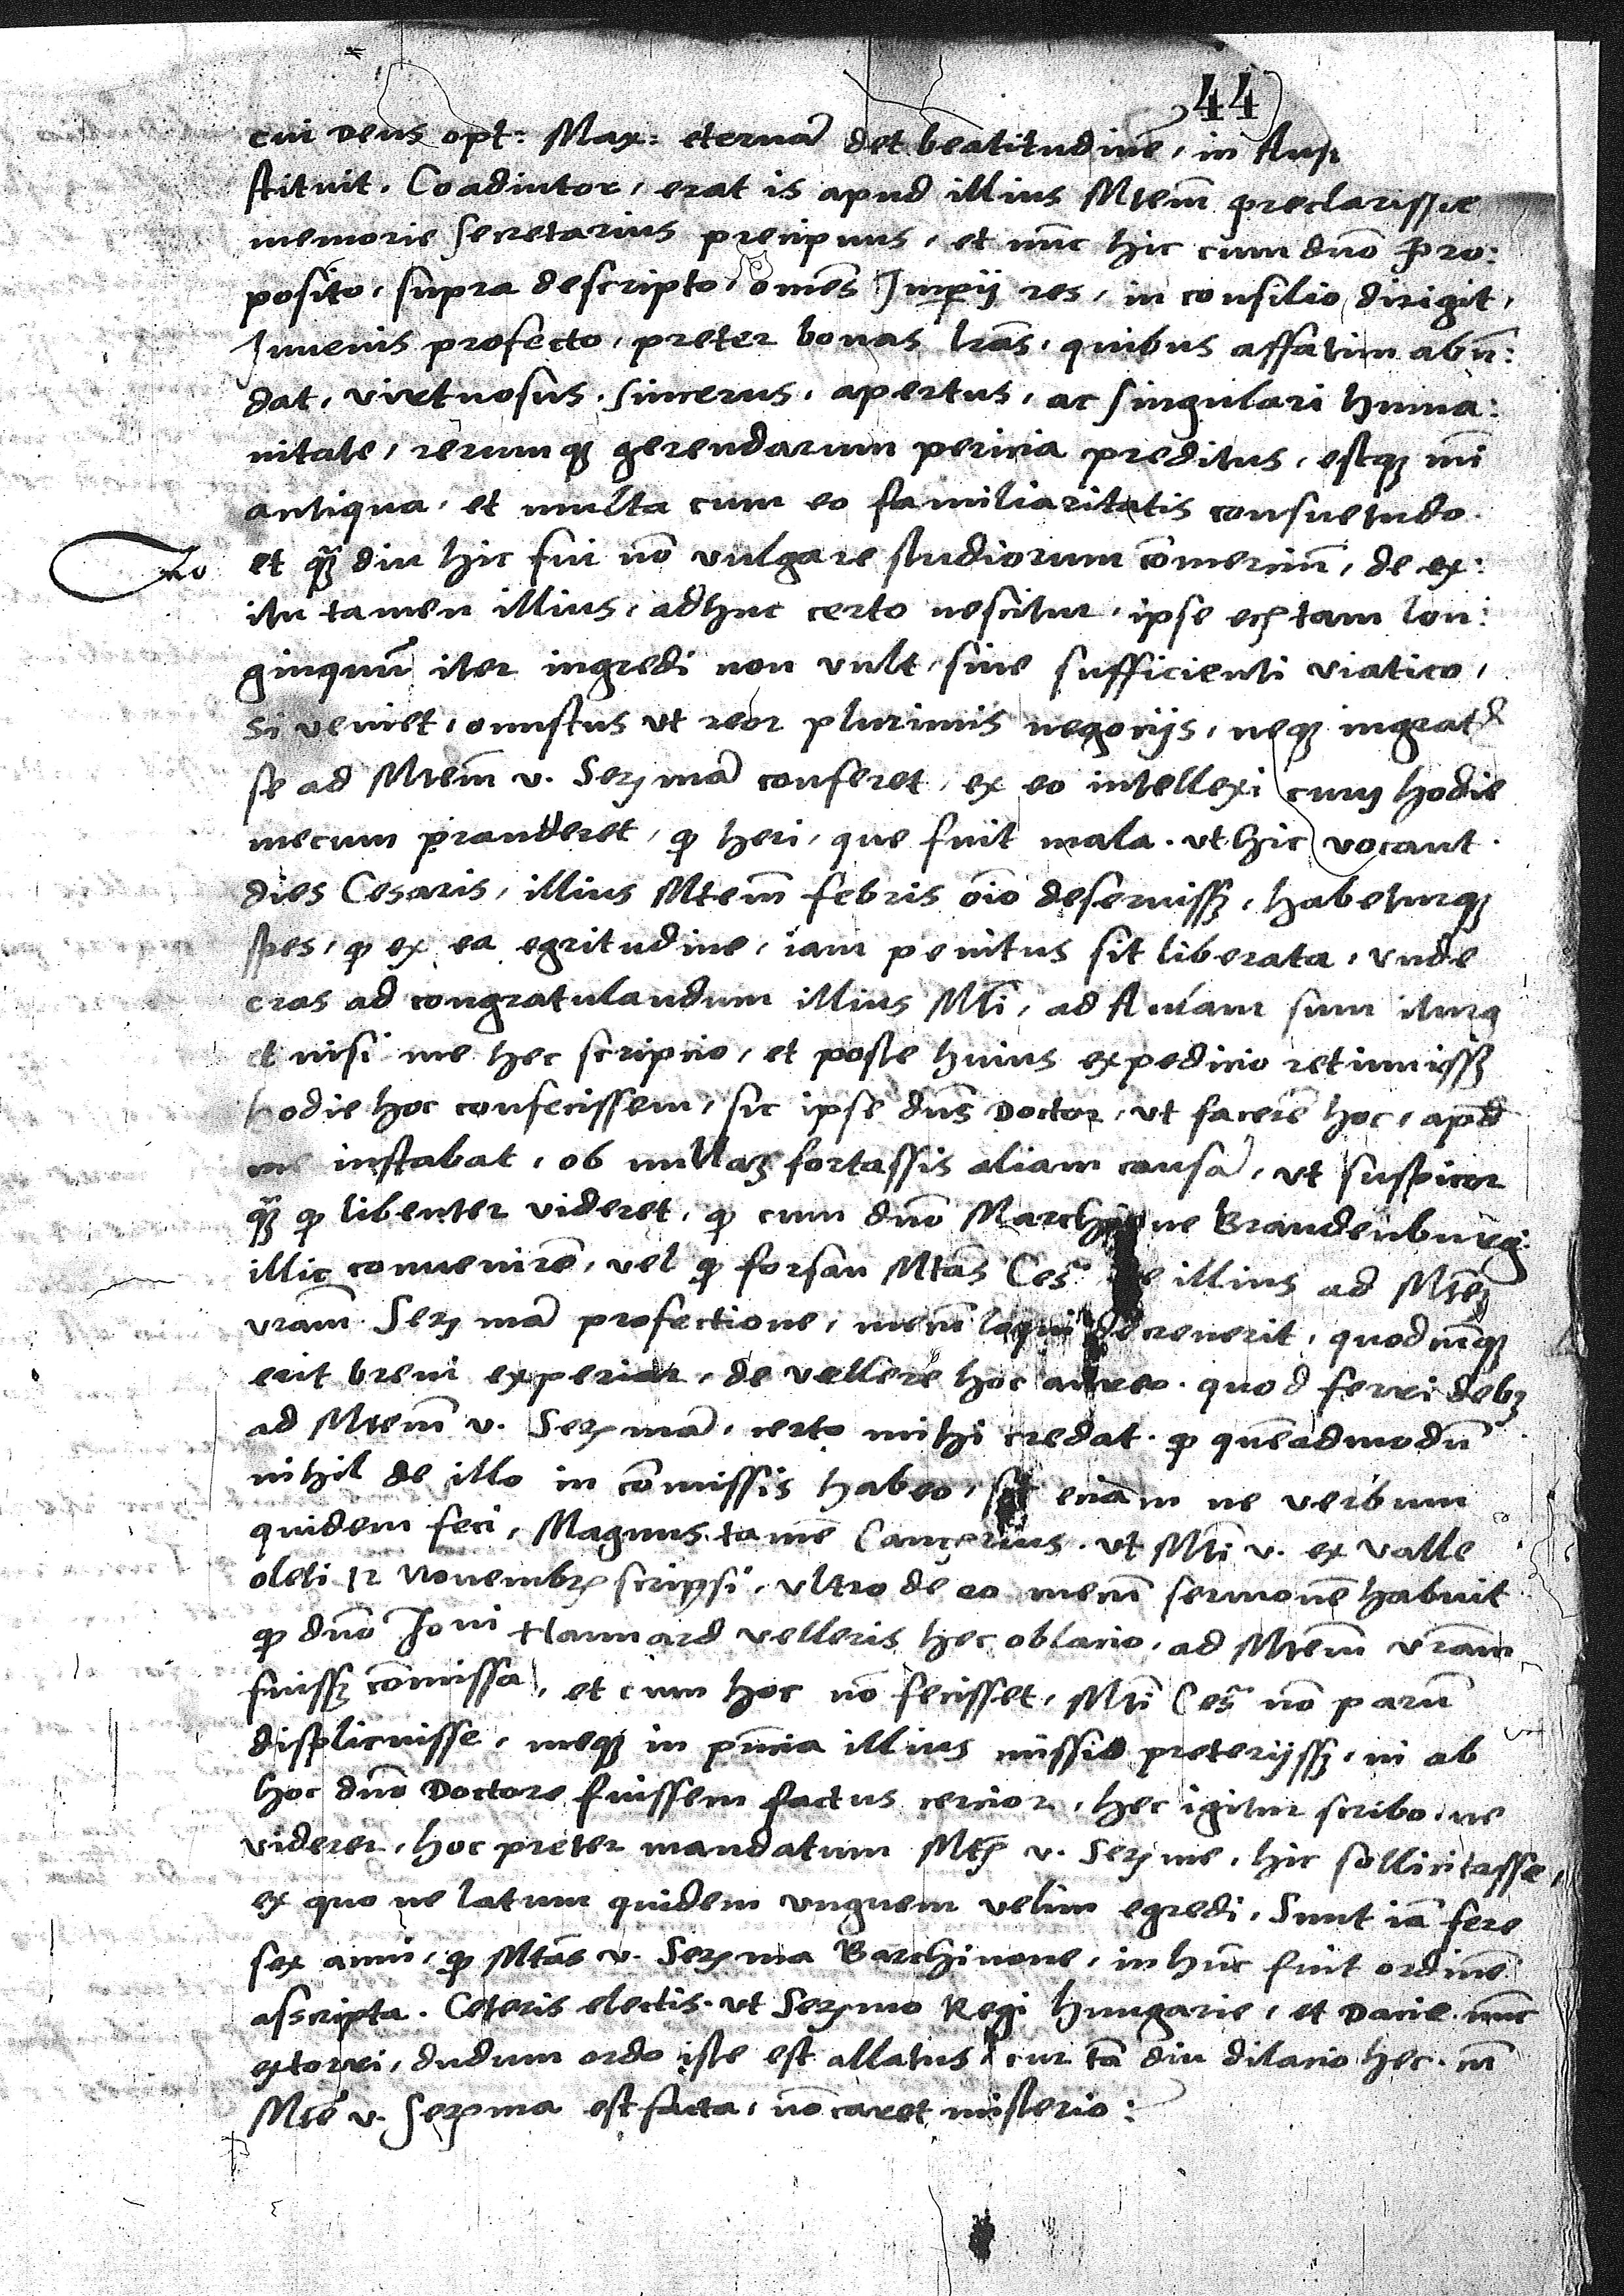 44
cui Deus opt: Max: eternã det beatitudinẽ, in
stituit. Coadiutor, erat is apud illius Mtem̃ preclarissie
memorie secretarius precipuus, et nunc hic cum dño Pro:
posito, supra descripto, om̃es Imperij res, in consilio dirigit,
Iuuenis profecto, preter bonas lrãs, quibus affatim abũ:
dat, virtuosus, sincerus, apertus, ac singulari huma:
nitate, rerumq; gerendarum pericia preditus, estq; mi
antiqua, et multa cum eo familiaritatis consuetudo.
et q̃ diu hic fui nõ vulgare studiorum cõmerciũ, de ex:
itu tamen illius, adhuc certo nescitur, ipse eñ tam lon:
ginquũ iter ingredi non vult, sine sufficienti viatico,
si veniet, onustus vt reor plurimis negocijs, neq; ingrat9
se ad Mtem̃ v. Serz mã conferet, ex eo intellexi cum hodie
mecum pranderet, q heri, que fuit mala. vt hic vocant.
dies Cesaris, illius Mtem̃ febris oĩo deseruissz, habeturq;
spes, q ex ea egritudine, iam penitus sit liberata, vnde
cras ad congratulandum illius Mti, ad Aulam sum itur9
et nisi me hec scripcio, et poste huius expedicio retinuissz
hodie hoc confecissem, sic ipse dñs Doctor, vt facerẽ hoc, apd
me instabat, ob nullaz fortassis aliam causã, vt suspicor
q̃z q libenter videret, q cum dño Marchione Brandenburg.
illic conuenirẽ, vel q forsan Mtas Ces.ª de illius ad Mtez
vram̃ Serz mã profectione, mecũ loqui decreuerit, quodcũq;
erit breui experiar, de vellere hoc aureo. quod ferri debz
ad Mtem̃ v. Serz mã, certo mihi credat. q quẽadmodũ
nihil de illo in cõmissis habeo, sit eciam ne verbum
quidem feci, Magnus tamẽ Cancerius. vt Mti v. ex Valle
oleti 12 Nouembrz scripsi, vltro de eo mecũ sermonẽ habuit
q dño Ioni Hannard velleris hec oblacio, ad Mtem̃ vram̃
fuissz cõmissa, et cum hoc nõ fecisset, Mti Ces.ᵉ nõ parũ
displicuisse, meq; in pñcia illius missio preterijssz, ni ab
hoc dño Doctore fuissem factus cercior, hec igitur scribo, ne
viderer, hoc preter mandatum Mtis v. Serz me, hic sollicitasse,
ex quo ne latum quidem vnguem velim egredi. Sunt iã fere
sex anni, q Mtas v. Serz ma Barchinone, in hũc fuit ordinẽ
asscripta. Ceteris electis. vt Serz mo Regi Hungarie, et Dacie. nũc
extorri, dudum ordo iste est allatus, cur tã diu dilacio hec. cũ
Mte v. Serz ma est facta, nõ caret misterio: